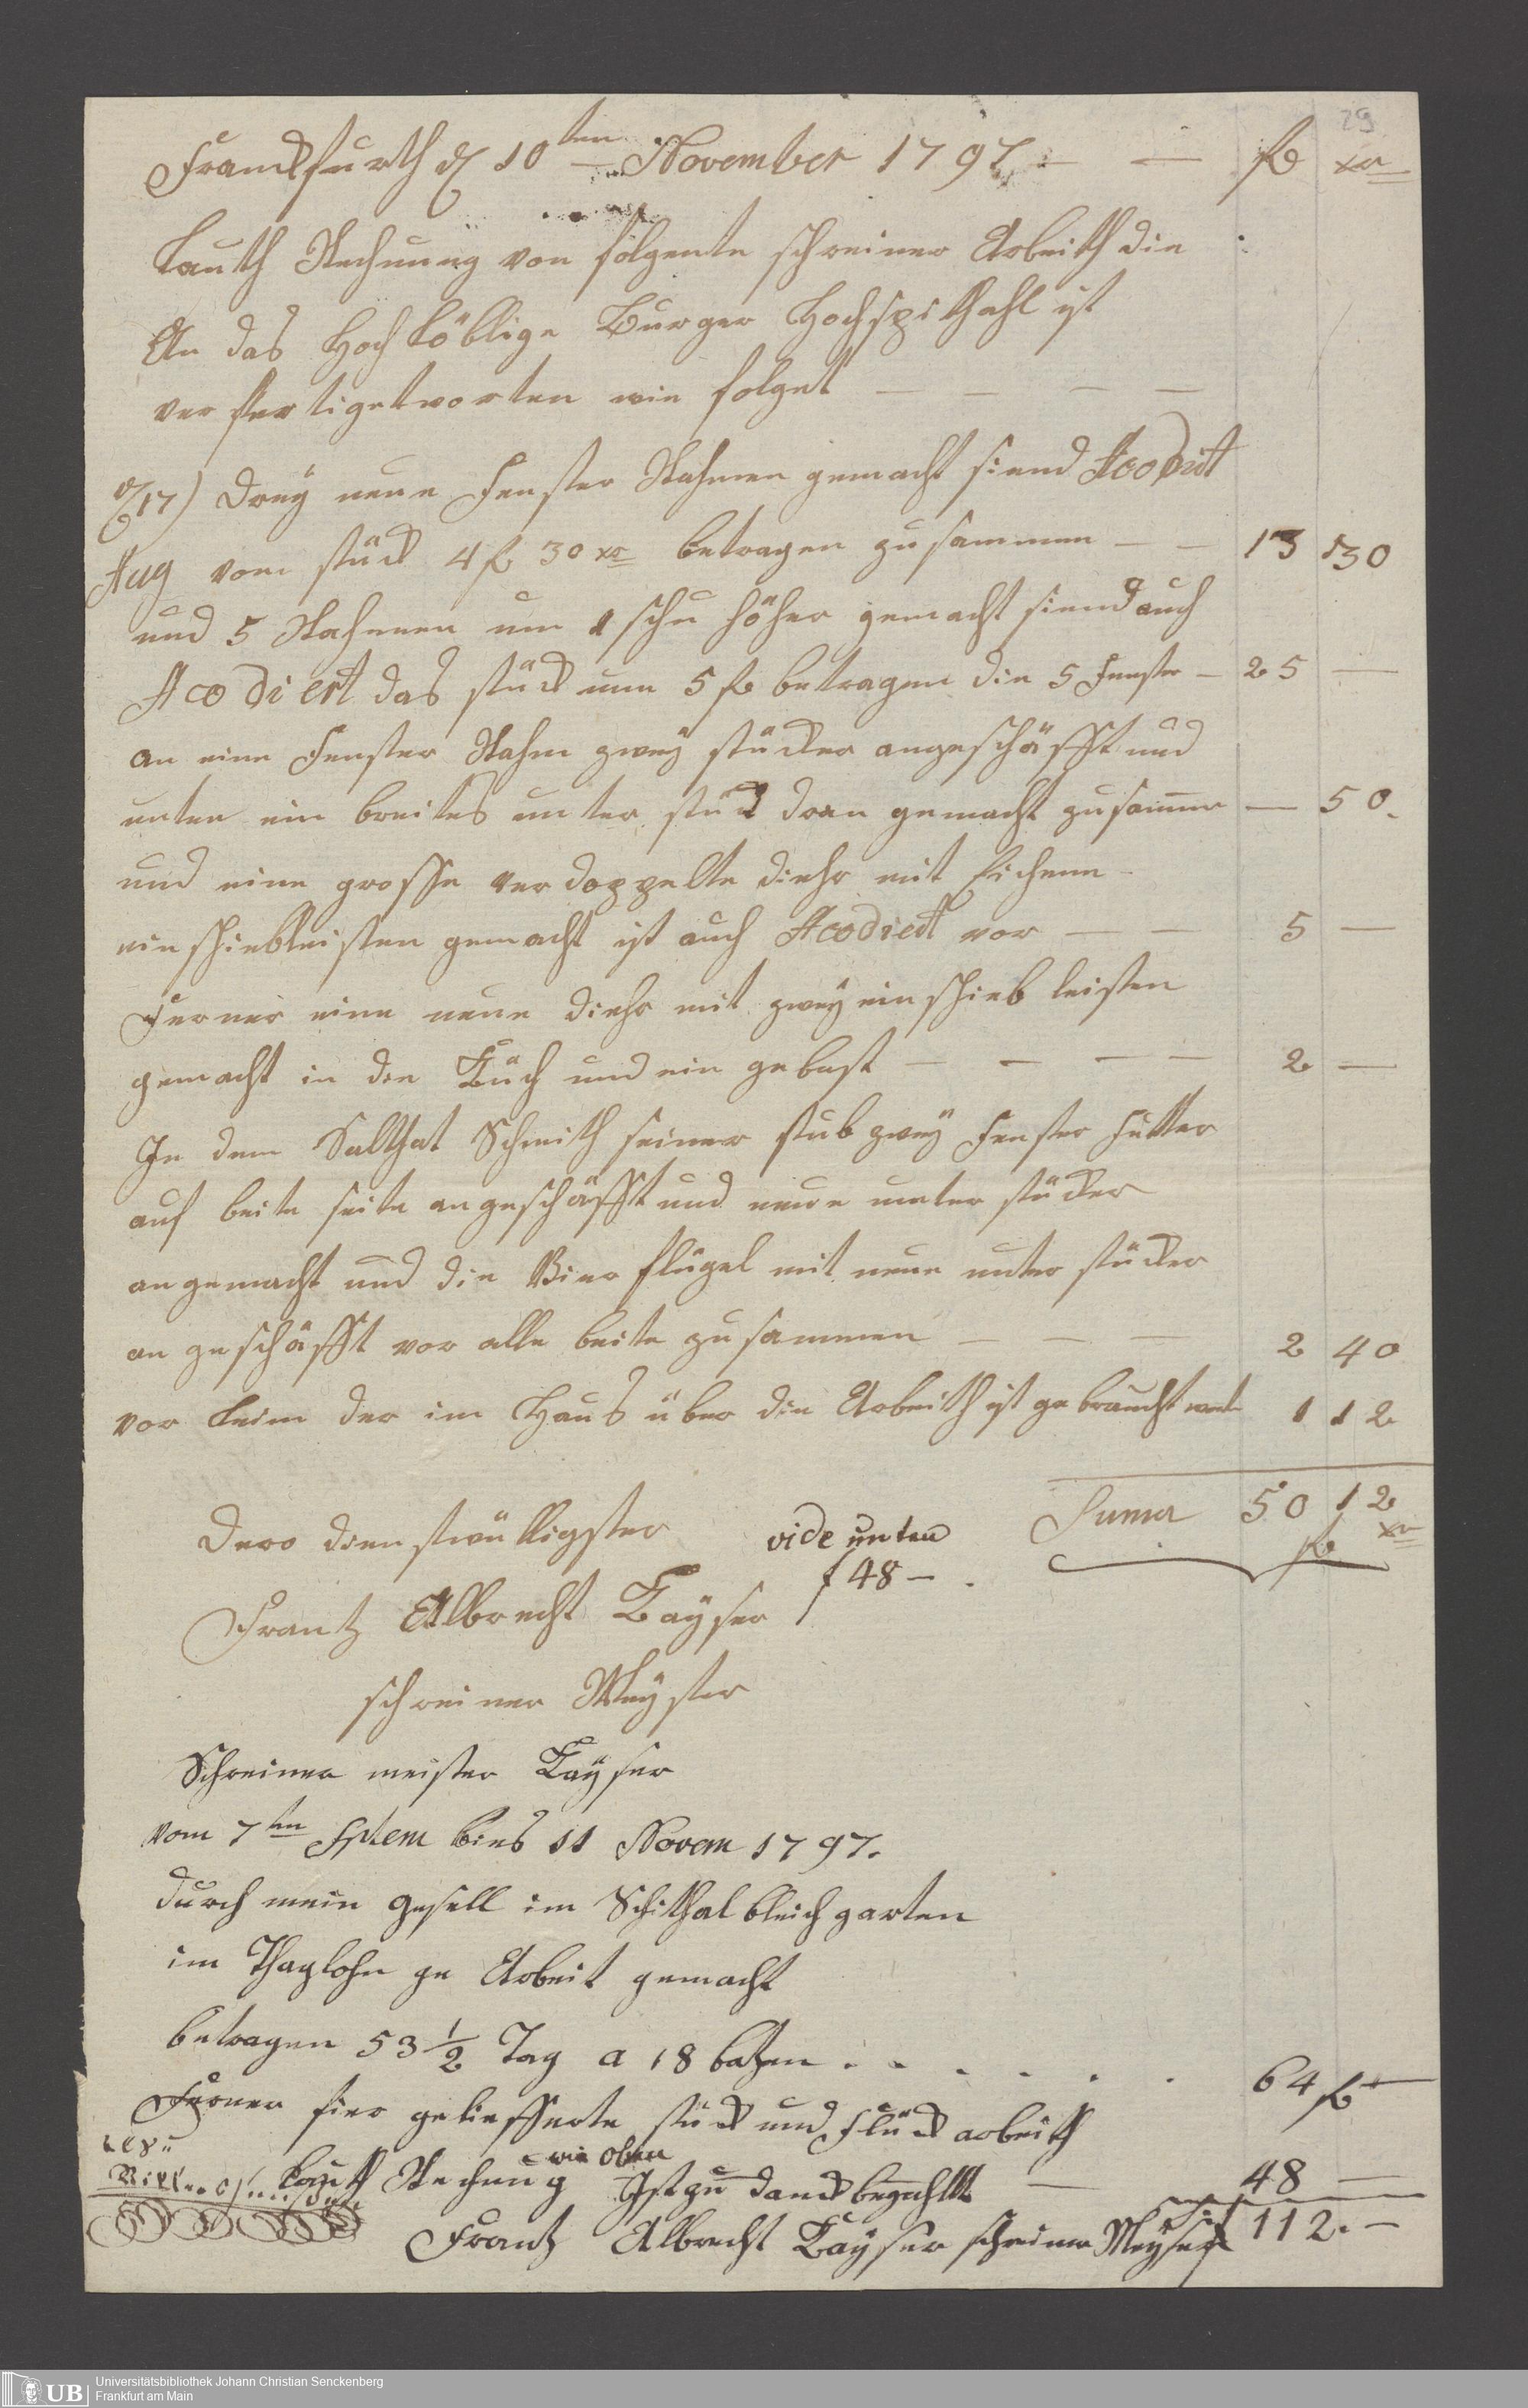 29
Franckfurth d 10ten November 1797 — — fl xr
Lauth Rechnung von folgente schreiner Arbeith die
An das Hochlöblige Burger Hochspithahl ist
verfertiget worten wie folget — — — —
d 17) Drey neue Fenster Rahmen gemacht siend Acodirt
Aug vom stück 4 fl 30 xr betragen zusammen — — 13 30
und 5 Rahmen um 1 schu höher gemacht siend auch
Acodiert das stück um 5 fl betragen die 5 Fenster — 25 —
an eine Fenster Rahm zwey stücker angeschäfft und
unten ein breites unter stück dran gemacht zusammen — 50.
und eine grosse verdoppelte diehr mit Eichene
einschiebleisten gemacht ist auch Acodiert vor — — 5 —
Ferner eine neue diehr mit zwey einschieb leisten
gemacht in die Küch und ein gebast — — — — 2 —
In dem Salthat Schmith seiner stub zwey Fenster Futter
auf beite seite angeschäfft und neue unter stücker
angemacht und die Vier flügel mit neue unter stücker
angeschäfft vor alle beite zusammen — — — 2 40
vor Leim der im Haus über die Arbeith ist gebraucht 1 12
Suma 50 12
fl xr
Dero dienstwülligster
vide unten
f 48 —.
Frantz Albrecht Kayser
schreiner Meyster
Schreiner meister Kayser
vom 7ten Sptem bies 11 Novem 1797.
durch mein gesell im Schithal bleichgarten
im Thaglohn ge Arbeit gemacht
betragen 53 1/2 Tag a 18 batzen . . . . . . 64 fl —
Ferner hier geliefferte stück und Flück arbeith
Lauth Rechnung wie oben — 48 —
Ist zu danck bezahlt
Frantz Albrecht Kayser schreiner Meyster f 112. —
UB
Universitätsbibliothek Johann Christian Senckenberg
Frankfurt am Main